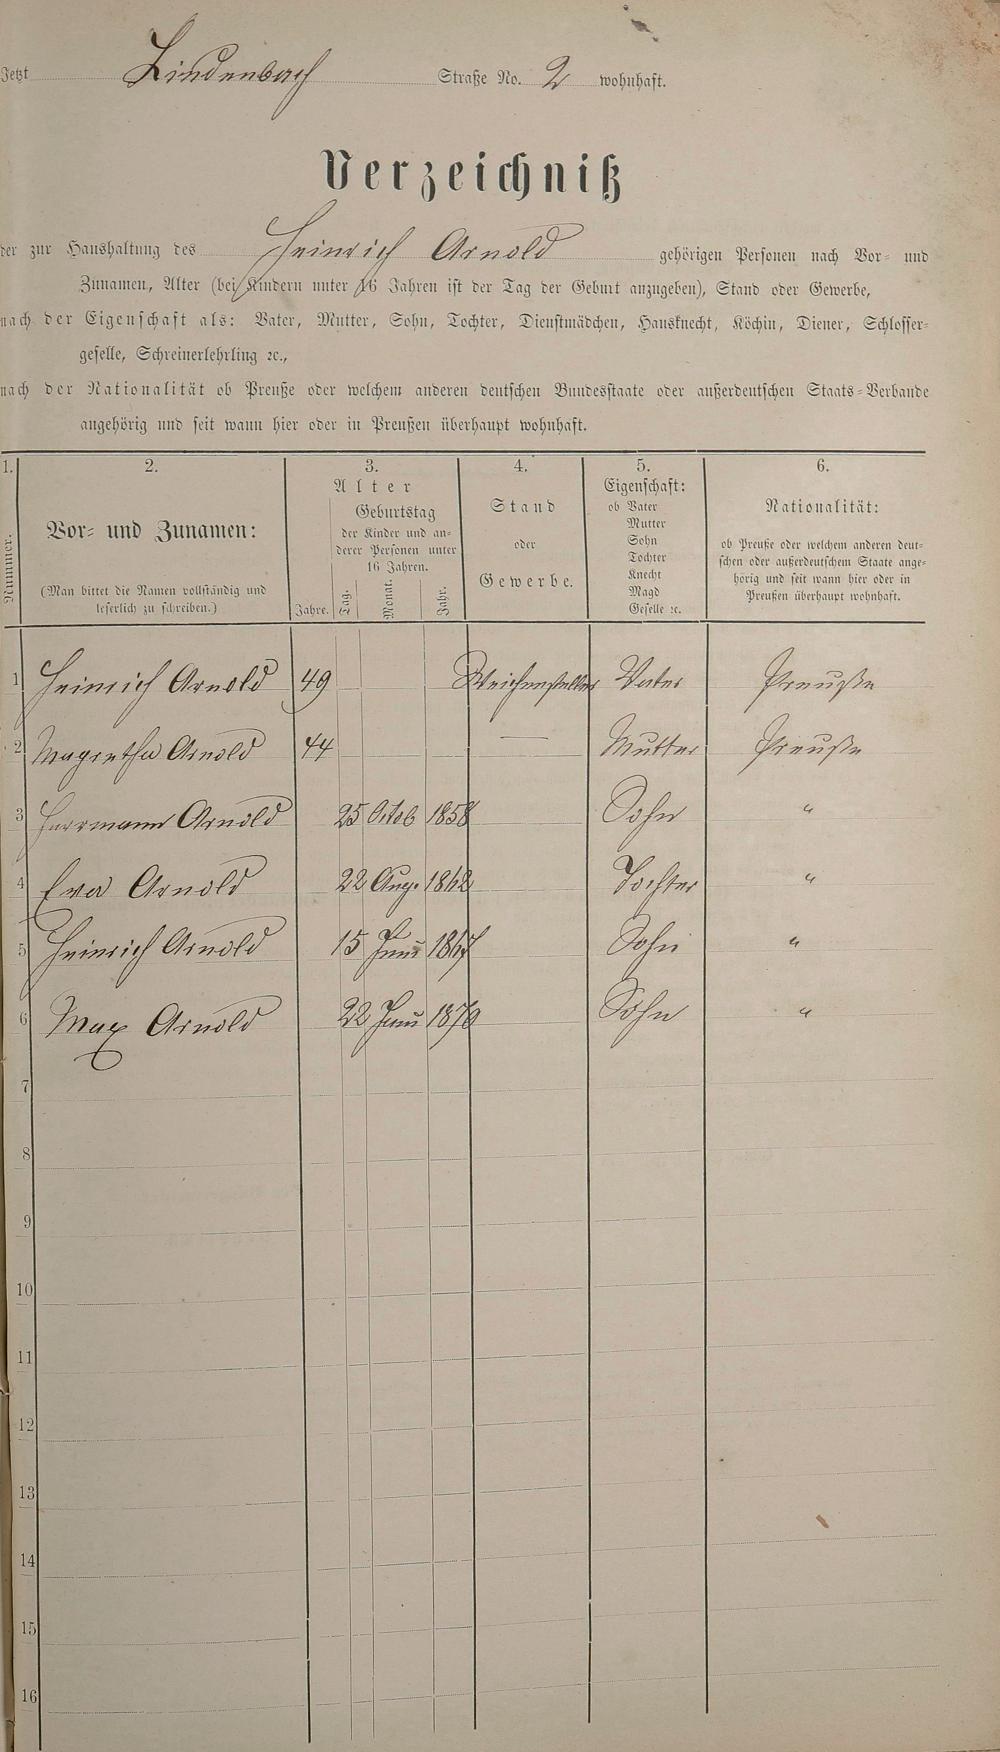 Jetzt Lindenbach Straße No. 2 wohnhaft.
Verzeichniß
der zur Haushaltung des Heinrich Arnold gehörigen Personen nach Vor- und
Zunamen, Alter (bei Kindern unter 16 Jahren ist der Tag der Geburt anzugeben), Stand oder Gewerbe,
nach der Eigenschaft als: Vater, Mutter, Sohn, Tochter, Dienstmädchen, Hausknecht, Köchin, Diener, Schlosser-
geselle, Schreinerlehrling ꝛc.,
nach der Nationalität ob Preuße oder welchem anderen deutschen Bundesstaate oder außerdeutschen Staats-Verbande
angehörig und seit wann hier oder in Preußen überhaupt wohnhaft.
1. 2. 3. 4. 5. 6.
Nummer.
Vor- und Zunamen:
(Man bittet die Namen vollständig und
leserlich zu schreiben.)
Alter
Jahre.
Geburtstag
der Kinder und an-
derer Personen unter
16 Jahren.
Tag. Monat. Jahr.
Stand
oder
Gewerbe.
Eigenschaft:
ob Vater
Mutter
Sohn
Tochter
Knecht
Magd
Geselle ꝛc.
Nationalität:
ob Preuße oder welchem anderen deut-
schen oder außerdeutschem Staate ange-
hörig und seit wann hier oder in
Preußen überhaupt wohnhaft.
1 Heinrich Arnold 49 Weichensteller Vater Preuße
2 Magretha Arnold 44 — Mutter Preuße
3 Herrmann Arnold 25 Octob 1858 Sohn "
4 Eva Arnold 22 Aug. 1862 Tochter "
5 Heinrich Arnold 15 Juni 1867 Sohn "
6 Max Arnold 22 Juni 1870 Sohn "
7
8
9
10
11
12
13
14
15
16